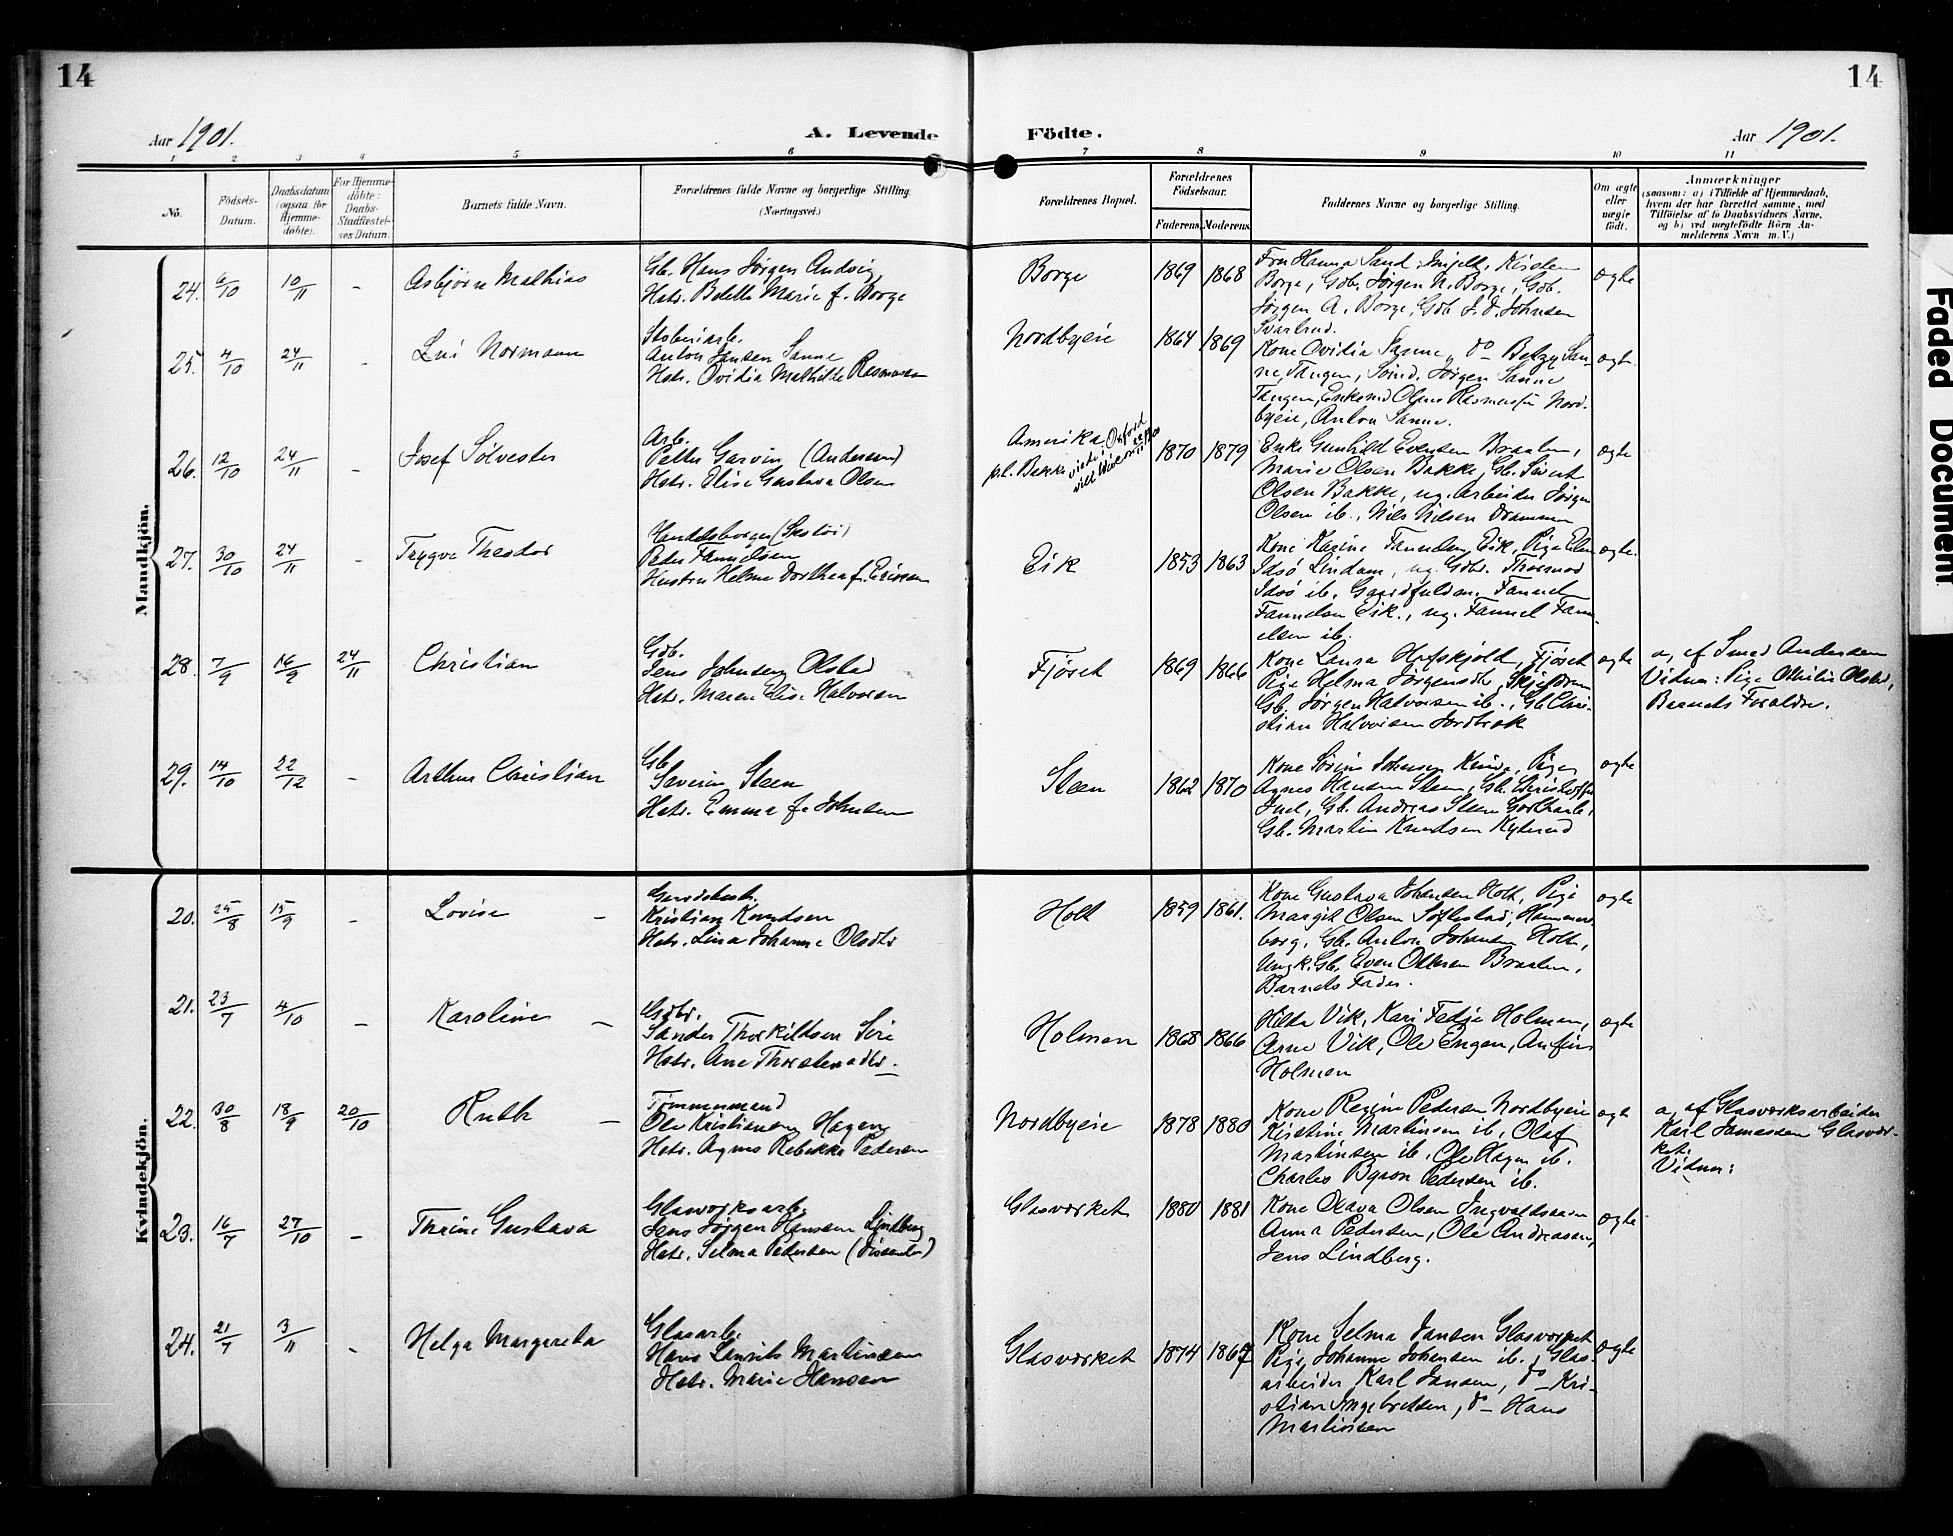 14
14
Aar 1901.
A. Levende
Födte.
Aar 1901.
1 2 3 4 5 6 7 8 9 10 11
No.
Födsels-
Datum.
Daabsdatum
(ogsaa for
Hjemme-
döbte).
For Hjemme-
döbte:
Daabs-
Stadfæstel-
ses Datum.
Barnets fulde Navn.
Forældrenes fulde Navne og borgerlige Stilling.
(Næringsvei.)
Forældrenes Bopæl.
Forældrenes
Födselsaar.
Faderens
Moderens
Faddernes Navne og borgerlige Stilling.
Om ægte
eller
uægte
födt.
Anmærkninger
(saasom: a) i Tilfælde af Hjemmedaab,
hvem der har forrettet samme, med
Tilföielse af to Daabsvidners Navne,
og b) ved uægtefödte Börn An-
melderens Navn m. V.)
Mandkjön.
24. 6/10 10/11 - Asbjørn Mathias
Gb. Hans Jørgen Andvig,
Hstr. Betelle Marie f. Borge
Borge 1869 1868
Fru Hanna Sand, Kirsten
Borge, Gdb. Jørgen N. Borge, Gdb.
Jørgen A. Borge, Gdb J. D. Johnsen
Svartrud.
ægte
25. 4/10 24/11 - Normann
Anton Jansen Sanne
Hstr. Ovidia Mathilde Rasmussen
Nordbyeie 1864 1869
Kone Ovidia Sanne, do Betzy San-
ne, Tangen, Jørgen Sanne
Tangen, Enkemd Olaus Rasmussen Nord-
byeie, Anton Sanne.
ægte
26. 12/10 24/11 - Josef Sølvester
Arb.
Petter Garvin (Andersen)
Hstr. Elise Gustava Olsen
Amerika
p.t. Bakke
1870 1879
Enke Gunhild Evensen Braaten,
Marie Olsen Bakke, Gb. Sivert
Olsen Bakke, ug. Arbeider Jørgen
Olsen ib., Nils Nilsen Drammen
ægte
27. 30/10 24/11 - Trygve Theodor
Handelsborger
Peder Fannelsen
Hustru Helene Dorthea f. Ericsen
Eik 1853 1863
Kone Karine Fannelsen Eik, Pige Elen
Idsö Lindam, ug. Gdbr. Thormod
Idsö ib., Gaardfuldm. Fannel
Fannelsen Eik., ug. Fannel Fann-
elsen ib.
ægte.
28. 7/9 16/9 24/11 Christian
Gdb.
Jens Johnsen Olstad
Hstr. Maren Elise Halvorsen
Fjøset 1869 1866
Kone Laura Hofskjold, Fjøset
Pige Helma Jørgensdtr. Skjefstrøm
Gb. Jørgen Halvorsen ib., Gb Chri-
stian Halvorsen Jordbræk
ægte
a, af Smed Andersen
Vidner: Pige Othilie Olstad,
Barnets Forældre.
29. 14/10 22/12 - Arthur Christian
Gb.
Severin Steen
Hstr. Emma f. Johnsen
Steen 1862 1870
Kone Sørine Johnsen Pige
Agnes Hansen Steen, Gb. Christoffer
Juel, Gb. Andreas Steen
Gb. Martin Knudsen
ægte
Kvindekjön.
20. 25/8 15/9 - Lovise -
Kristian Knudsen
Hstr. Lina Johanne Olsdtr
Holt 1859 1861.
Kone Gustava Johansen Holt, Pige
Margit Olsen Søftestad, Hammers-
borg, Gb. Anton Johansen Holt,
Ungk. Gb. Even Olsen Braaten,
Barnets Fader.
ægte
21. 23/7 4/10 - Karoline -
Gdbr.
Sander Thorkildsen Sire
Hstr. Ane Thorstensdtr.
Holmen 1868 1866
Hilda Vik, Kari Fedje Holmen,
Arne Vik, Ole Engen, Anfin
Holmen
ægte
22. 30/8 18/9 20/10 Ruth -
Tømmermand
Ole Kristiansen Hagen
Hstr. Agnes Rebekka Pedersen
Nordbyeie 1878 1880
Kone Regine Pedersen Nordbyeie
Kirstine Martinsen ib, Olaf
Martinsen ib, Ole Hagen ib.
Charles Byron Pedersen ib.
ægte
a, af Glasværksarbeider
Karl Jonassen Glasvær-
ket.
Vidner:
23. 16/7 27/10 - Thrine Gustava
Glasværksarb.
Jens Jørgen Hansen Lindberg
Hstr. Selma Pedersen (Dissenter)
Glasværket 1880 1881
Kone Olava Olsen Ingvaldsen
Anna Pedersen, Ole Andreasen,
Jens Lindberg.
ægte
24. 21/7 3/11 - Helga Margareta
Glasarb.
Hans Laurits Martinsen
Hstr. Marie Hansen
Glasværket 1874 1867
Kone Selma Jansen Glasværket
Pige Johanne Johansen ib., Glas-
arbeider Karl Jansen, do - Kri-
stian Ingebretsen, do - Hans
Martinsen
ægte
Faded Document